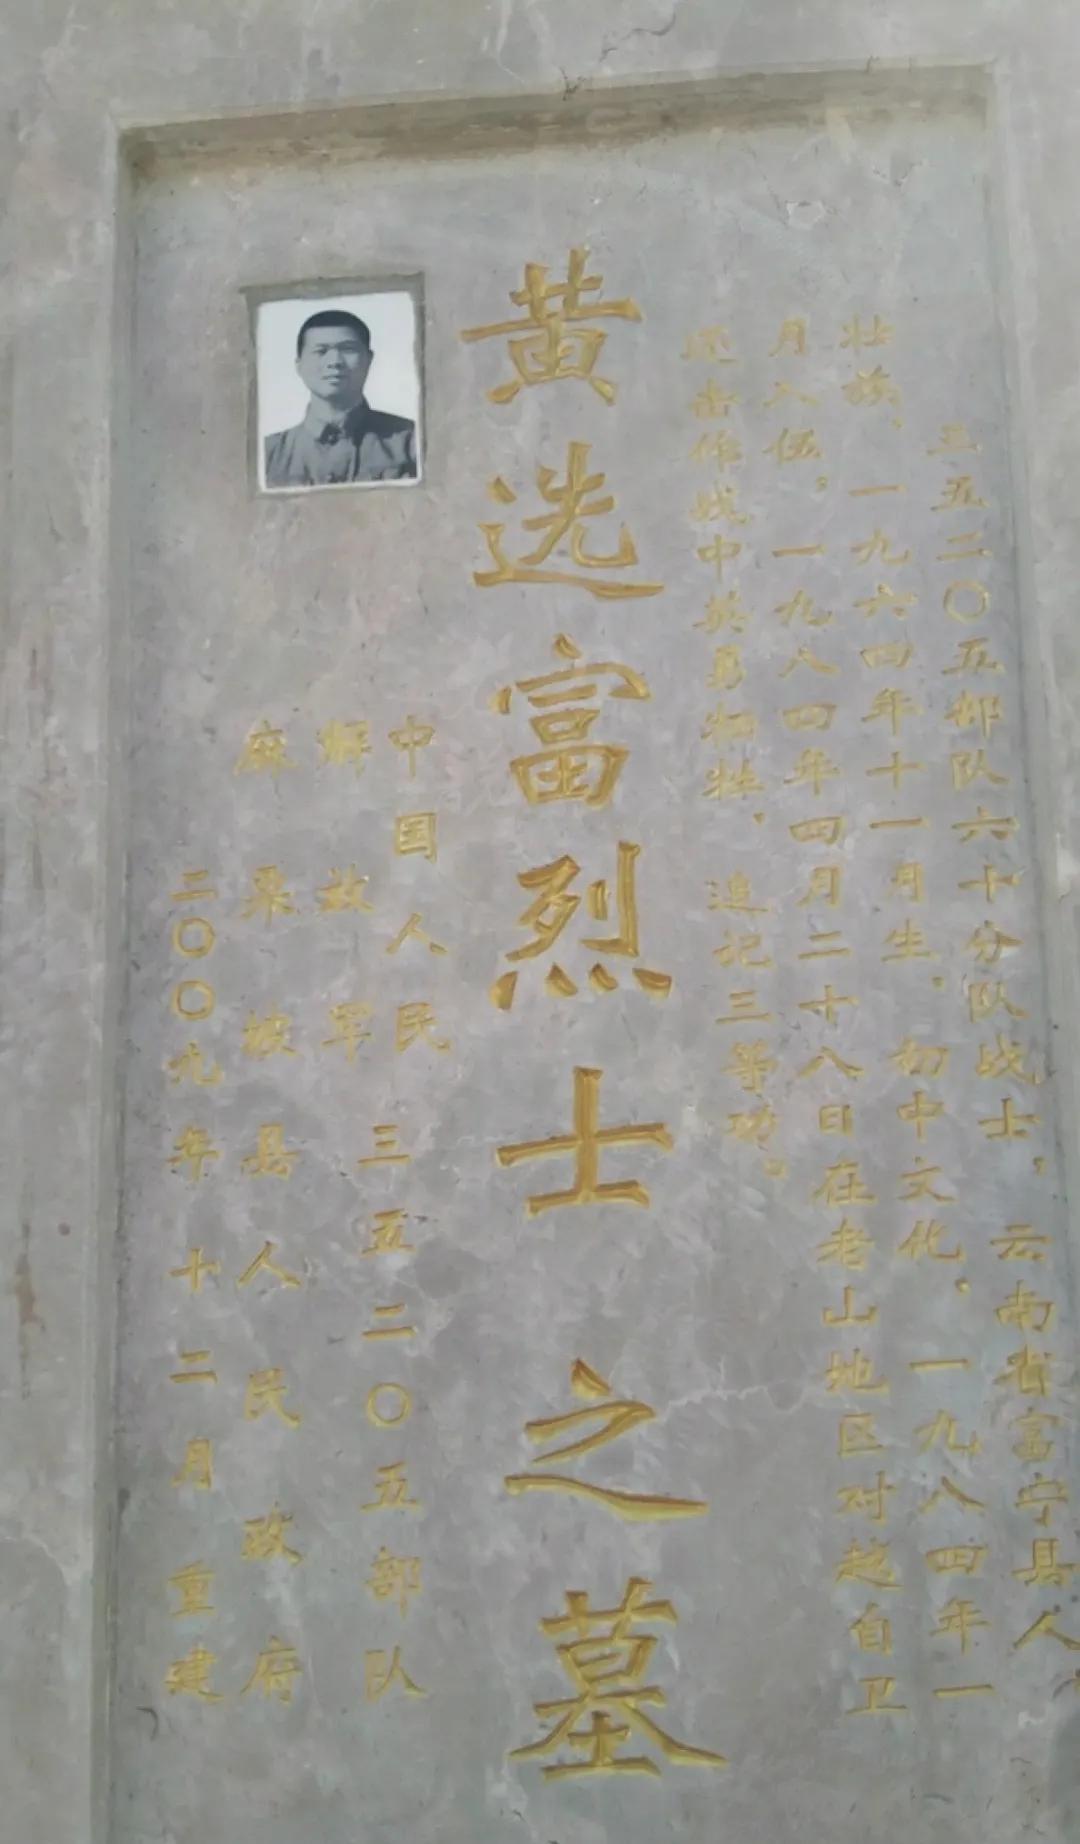 三五二〇五部队六十分队战士，云南省富宁县人，
壮族，一九六四年十一月生，初中文化，一九八四年一
月入伍。一九八四年四月二十八日在老山地区对越自卫
还击作战中英勇牺牲，追记三等功。
黄选富烈士之墓
中国人民
解放军
三五二〇五部队
麻栗坡县人民政府
二〇〇九年十二月重建